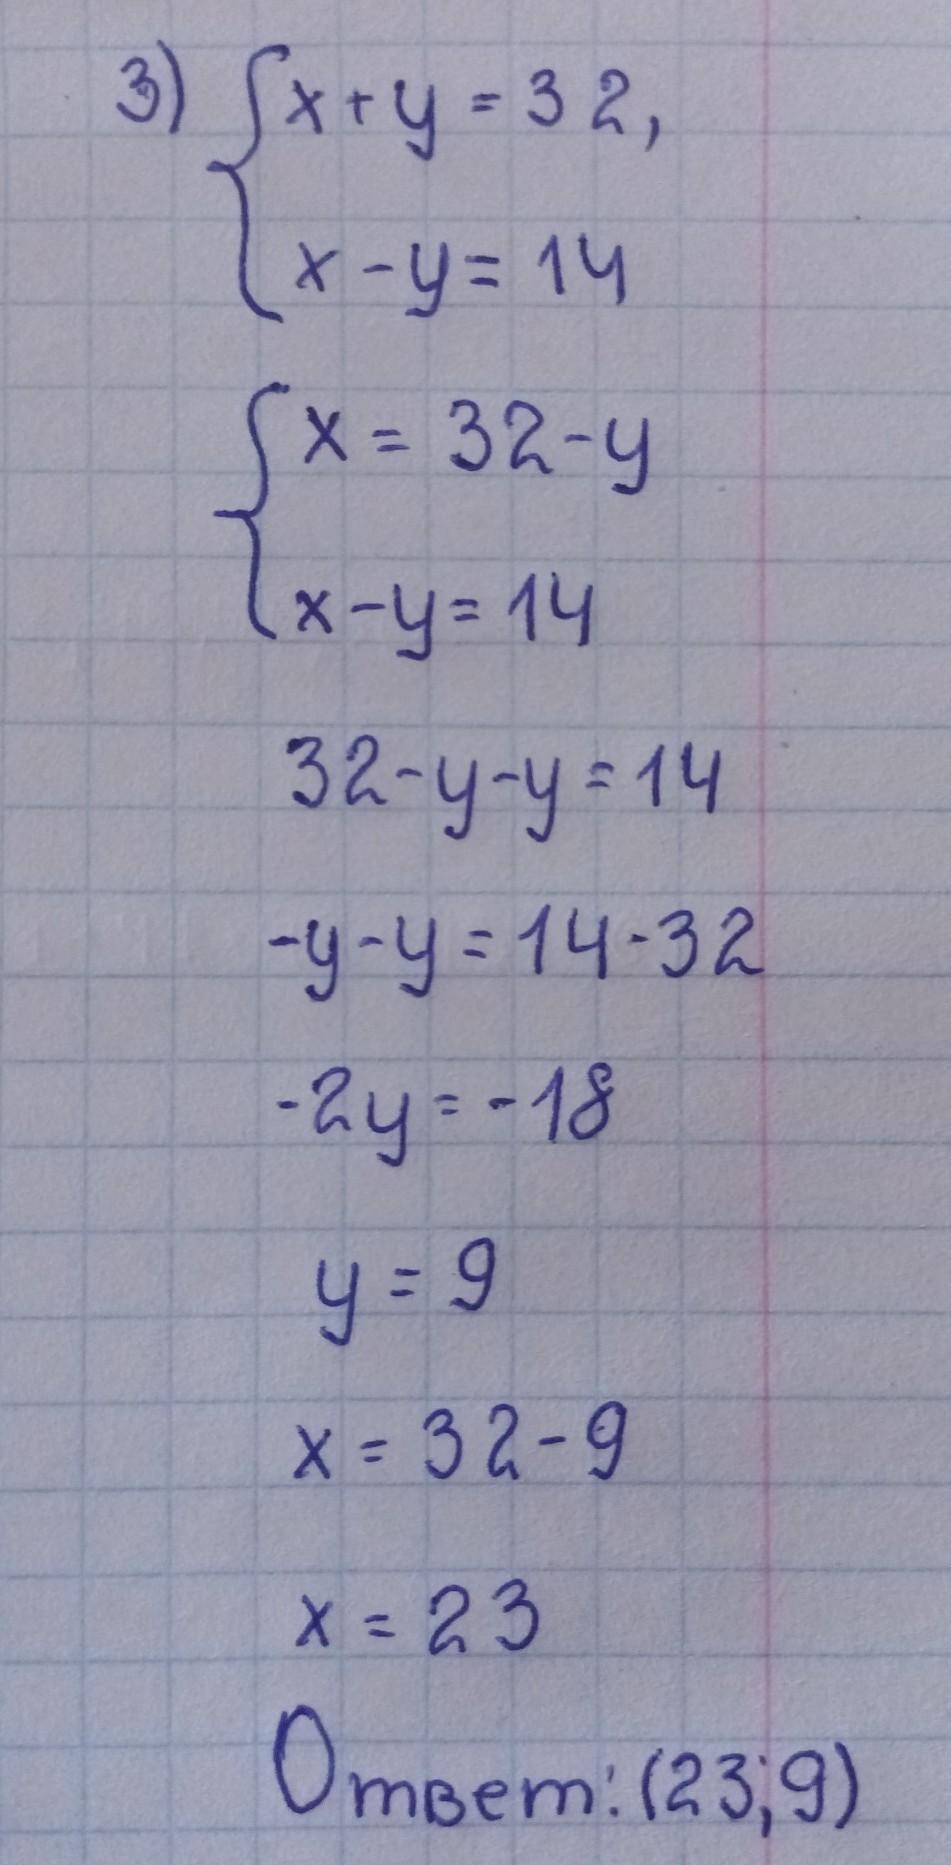 3) x+y=32,
x-y=14
x=32-y
x-y=14
32-y-y=14
-y-y=14-32
-2y=-18
y=9
x=32-9
x=23
Ответ: (23;9)